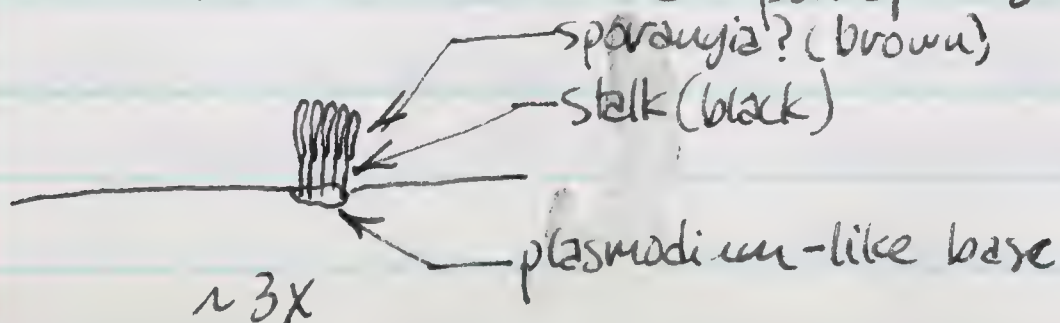 sporangia? (brown)
stalk (black)
plasmodium-like base
~ 3X